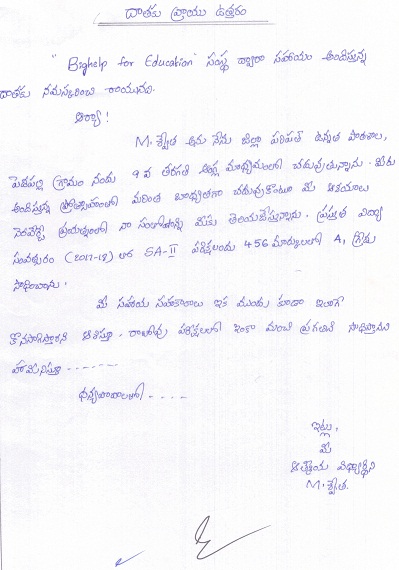 దాతకు వ్రాయు ఉత్తరం
" Bighelp for Education" సంస్థ ద్వారా సహాయం అందిస్తున్న
దాతకు నమస్కరించి రాయునది.
ఆర్యా!
M. శ్వేత అను నేను జిల్లా పరిషత్ ఉన్నత పాఠశాల,
పెదపల్లి గ్రామం నందు 9వ తరగతి ఆంగ్ల మాధ్యమంలో చదువుతున్నాను. మీరు
అందిస్తున్న ప్రోత్సాహంతో మరింత బాధ్యతగా చదువుకుంటూ మీ ఆశయాలు
నెరవేర్చే ప్రయత్నంలో నా సంతోషాన్ని మీకు తెలియచేస్తున్నాను. ప్రస్తుత విద్యా
సంవత్సరం (2017-18) లో SA-II పరీక్షలందు 456 మార్కులలో A, గ్రేడు
సాధించాను.
మీ సహాయ సహకారాలు ఇక ముందు కూడా ఇలాగే
కొనసాగిస్తారని ఆశిస్తూ - రాబోవు పరీక్షలలో ఇంకా మంచి ప్రగతిని సాధిస్తానని
హామీనిస్తూ -------
ధన్యవాదాలతో - - - -
ఇట్లు,
మీ
ఆత్మీయ విద్యార్థిని
M. శ్వేత.